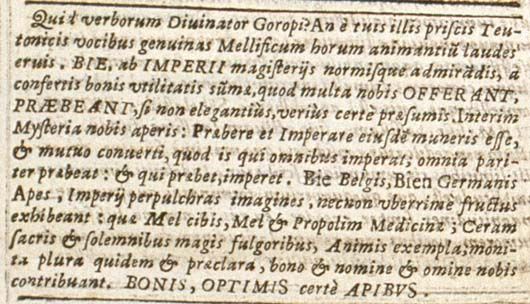 Quid verborum Diuinator Goropi? An è tuis illis priscis Teu-
tonicis vocibus genuinas Mellificum horum animantiũ laudes
eruis. BIE, ab IMPERII magisterijs normisque admirãdis, à
confertis bonis vtilitatis sũma, quod multa nobis OFFERANT,
PRÆBEANT, si non elegantiùs, verius certè præsumis. Interim
Mysteria nobis aperis: Præbere et Imperare eiusdẽ muneris esse,
& mutuo conuerti, quod is qui omnibus imperat, omnia pari-
ter præbeat: & qui præbet, imperet. Bie Belgis, Bien Germanis
Apes, Imperij perpulchras imagines, necnon vberrime fructus
exhibeant: quæ Mel cibis, Mel & Propolim Medicinæ; Ceram
sacris & solemnibus magis fulgoribus, Animis exempla; moni-
ta plura quidem & præclara, bono & nomine & omine nobis
contribuant. BONIS, OPTIMIS certè APIBVS.